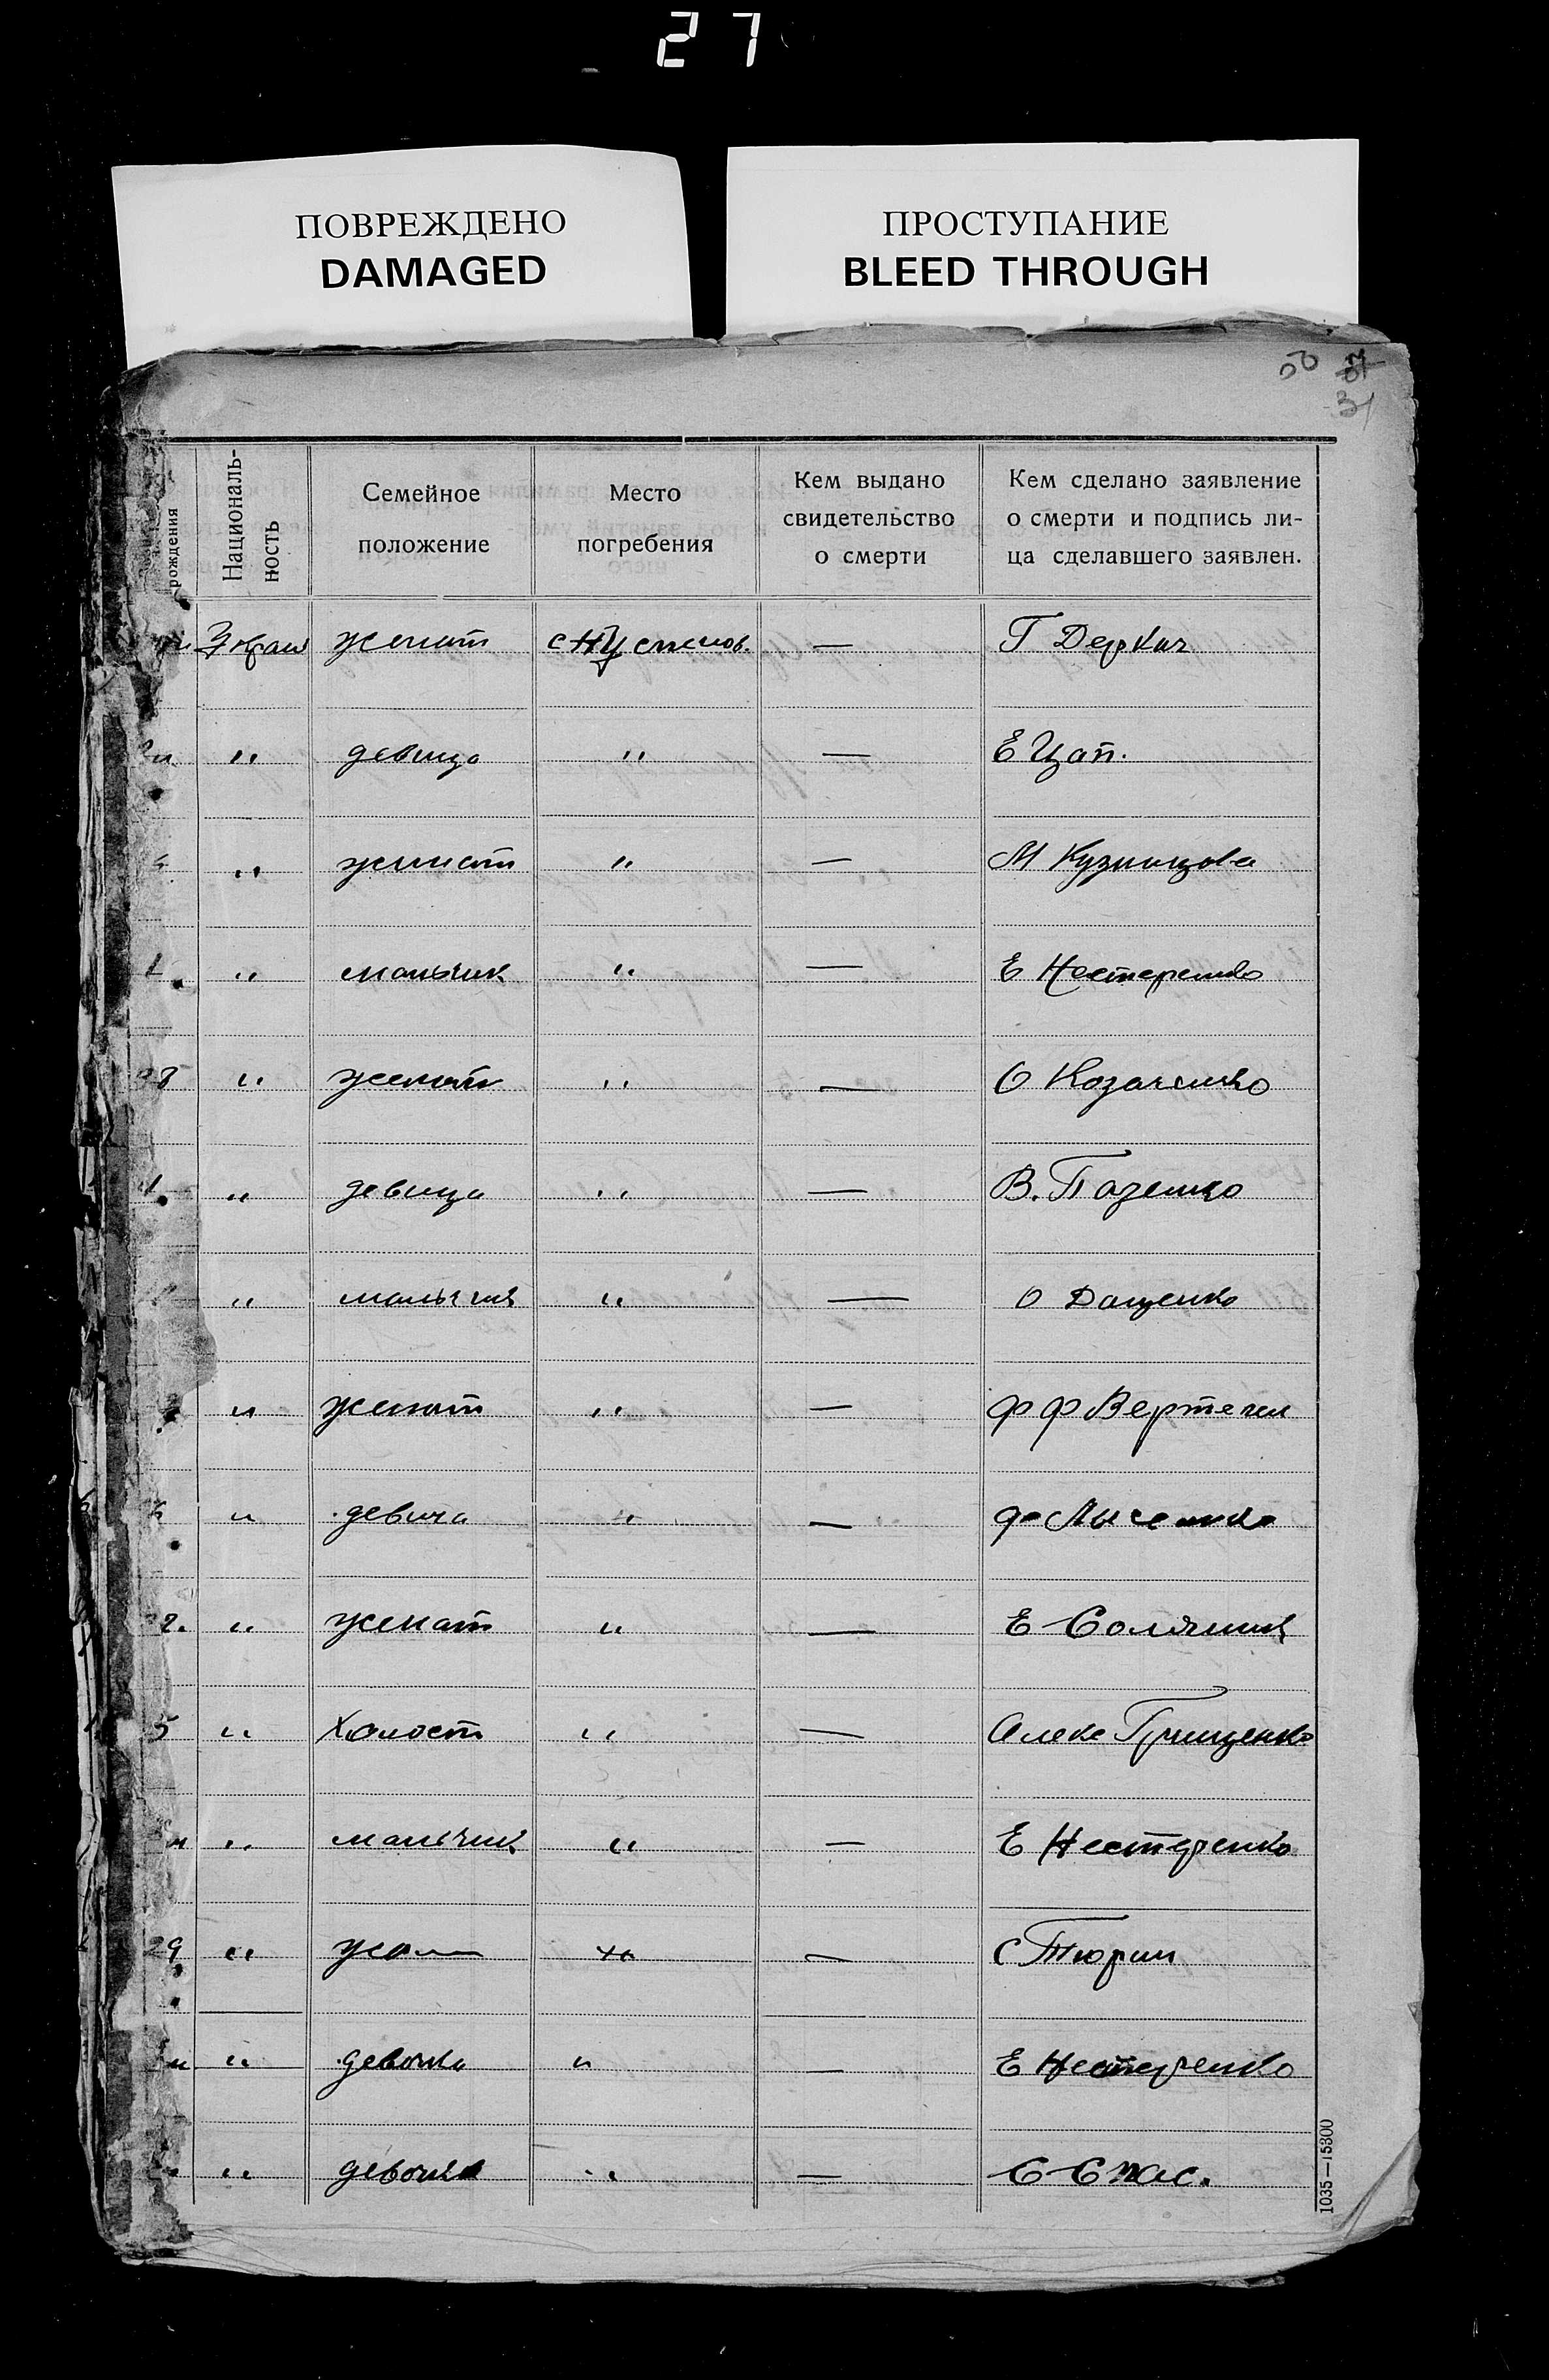 27
ПОВРЕЖДЕНО
DAMAGED
ПРОСТУПАНИЕ
BLEED THROUGH
50
31
рождения
Националь-
ность
Семейное
положение
Место
погребения
Кем выдано
свидетельство
о смерти
Кем сделано заявление
о смерти и подпись ли-
ца сделавшего заявлен.
женат — Г Деркач
" девица " — Е Цап.
" женат " — М Кузнецова
" мальчик " — Е Нестеренко
" женат " — О Козаченко
" девица " — В. Пазенко
" мальчик " — О Даценко
" женат " — Ф Ф Вертегел
" девица " — Лысенко
" женат " — Е Соляник
5 " Холост " — Алекс Грищенко
" мальчик " — Е Нестеренко
29 " — С Тюрин
" девочка " — Е Нестеренко
" девочка " — С Спас.
1035—15300